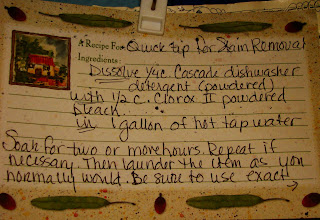 A Recipe For Quick tip for Stain Removal
Ingredients:
Dissolve 1/4 c. Cascade dishwasher
detergent (powdered)
with 1/2 c. Clorox II powdered
bleach
in 1 gallon of hot tap water
Soak for two or more hours. Repeat if
necessary. Then launder the item as you
normally would. Be sure to use exact →